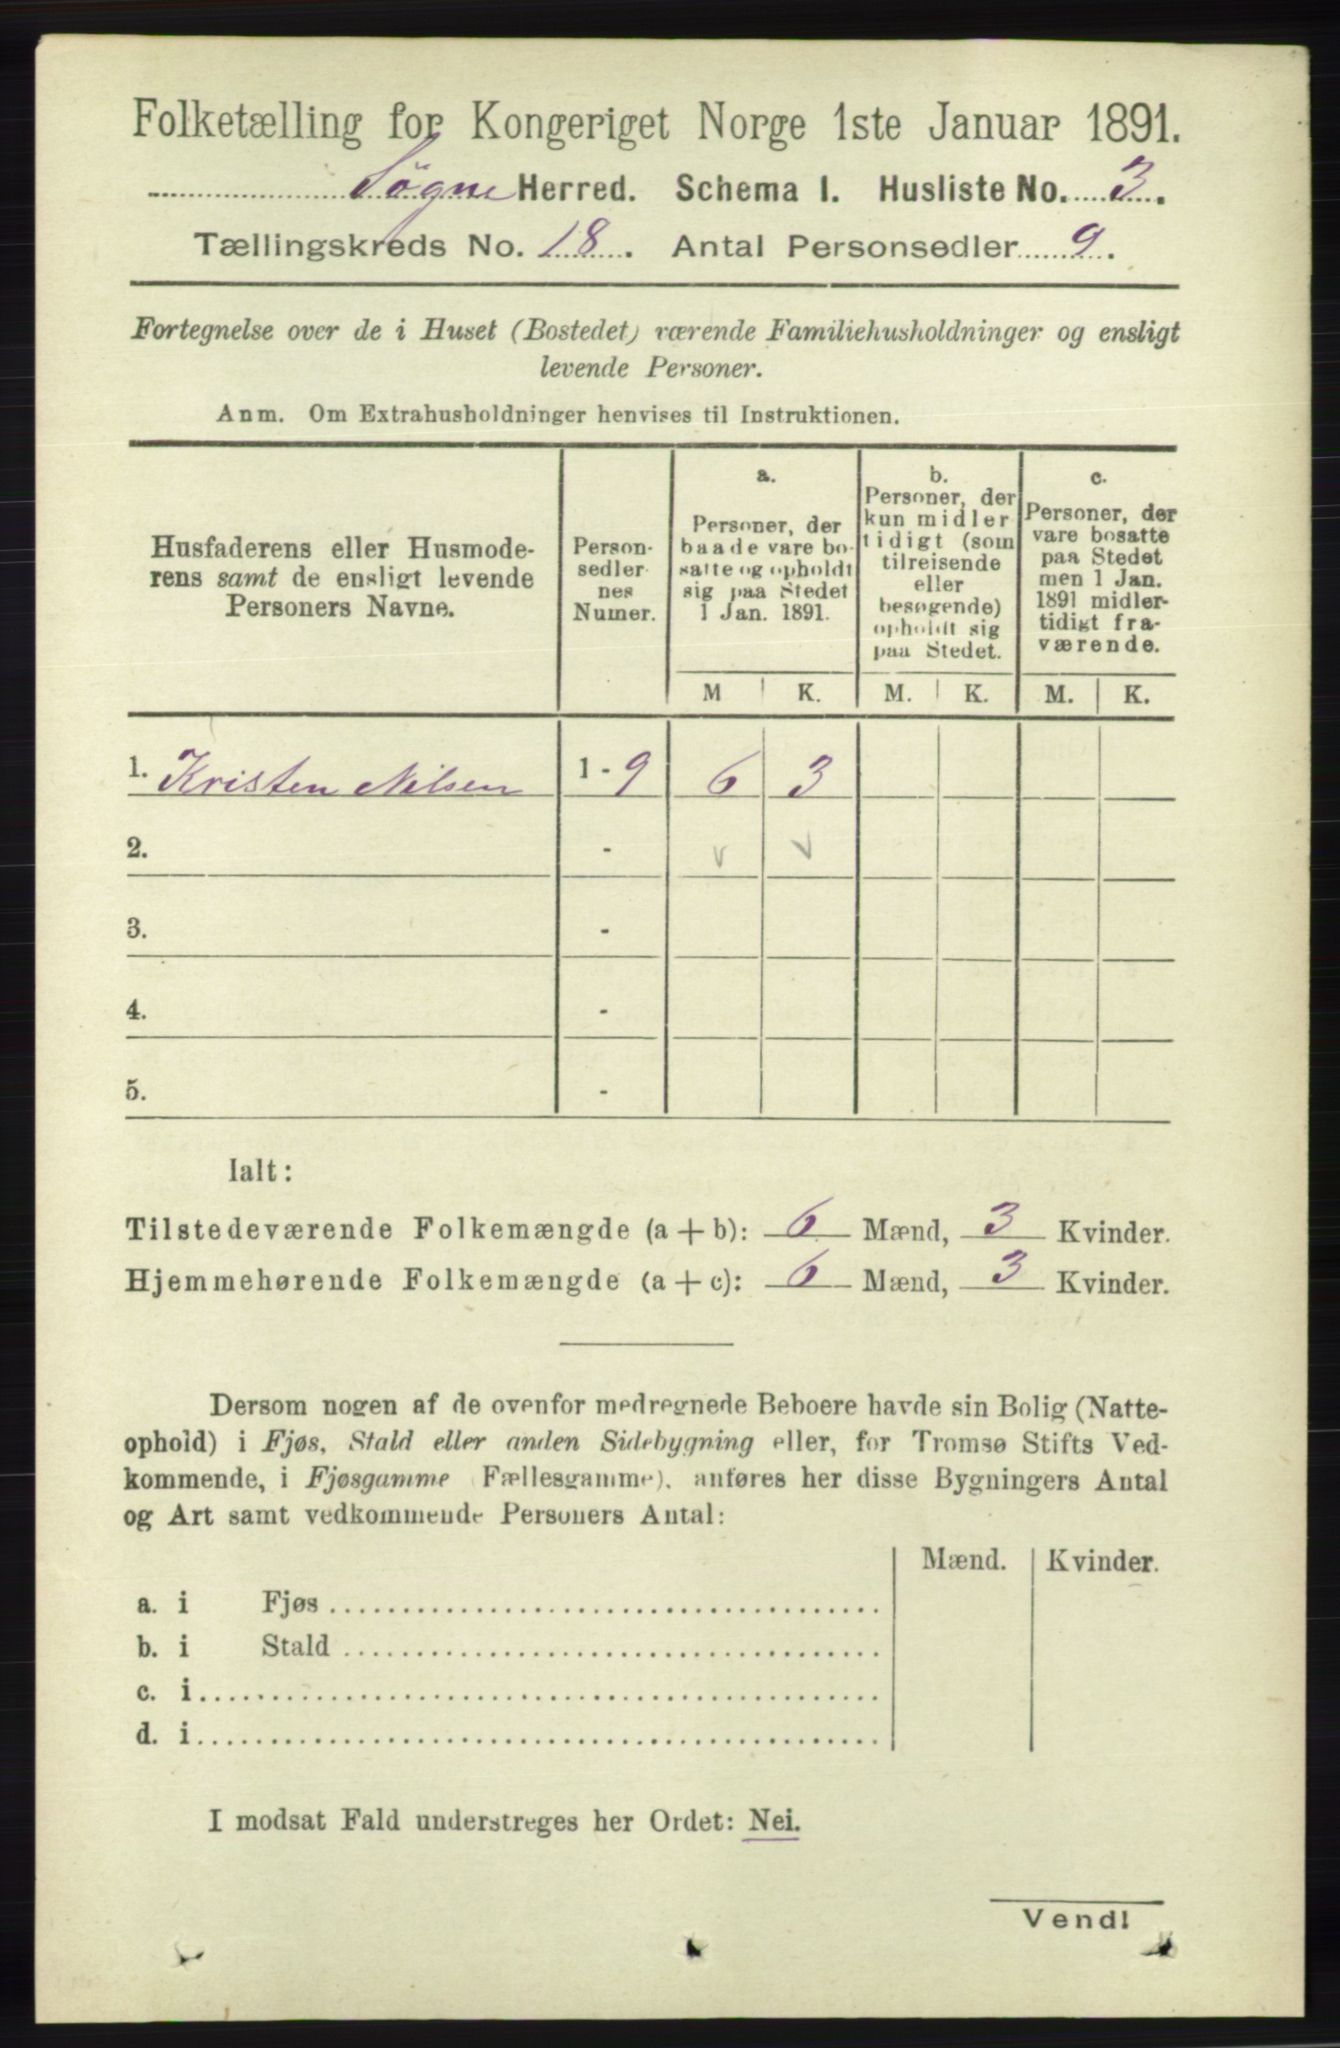 Folketælling for Kongeriget Norge 1ste Januar 1891.
Søgne Herred. Schema 1. Husliste No. 3.
Tællingskreds No. 18. Antal Personsedler 9.
Fortegnelse over de i Huset (Bostedet) værende Familiehusholdninger og ensligt
levende Personer.
Anm. Om Extrahusholdninger henvises til Instruktionen.
Husfaderens eller Husmode-
rens samt de ensligt levende
Personers Navne.
Person-
sedler
nes
Numer.
a.
Personer, der
baade vare bo-
satte og opholdt
sig paa Stedet
1 Jan. 1891.
b.
Personer, der
kun midler
tidigt (som
tilreisende
eller
besøgende)
opholdt sig
paa Stedet.
c.
Personer, der
vare bosatte
paa Stedet
men 1 Jan.
1891 midler-
tidigt fra-
værende.
M K. M. K. M. K.
1. Kristen Nilsen 1 - 9 6 3
2. - v v
3. -
4. -
5. -
Ialt:
Tilstedeværende Folkemængde (a + b): 6 Mænd, 3 Kvinder.
Hjemmehørende Folkemængde (a + c): 6 Mænd, 3 Kvinder.
Dersom nogen af de ovenfor medregnede Beboere havde sin Bolig (Natte-
ophold) i Fjøs, Stald eller anden Sidebygning eller, for Tromsø Stifts Ved-
kommende, i Fjøsgamme Fællesgamme). anføres her disse Bygningers Antal
og Art samt vedkommende Personers Antal:
Mænd. Kvinder.
a. i Fjøs
b. i Stald
c. i
d. i
I modsat Fald understreges her Ordet: Nei.
Vend!